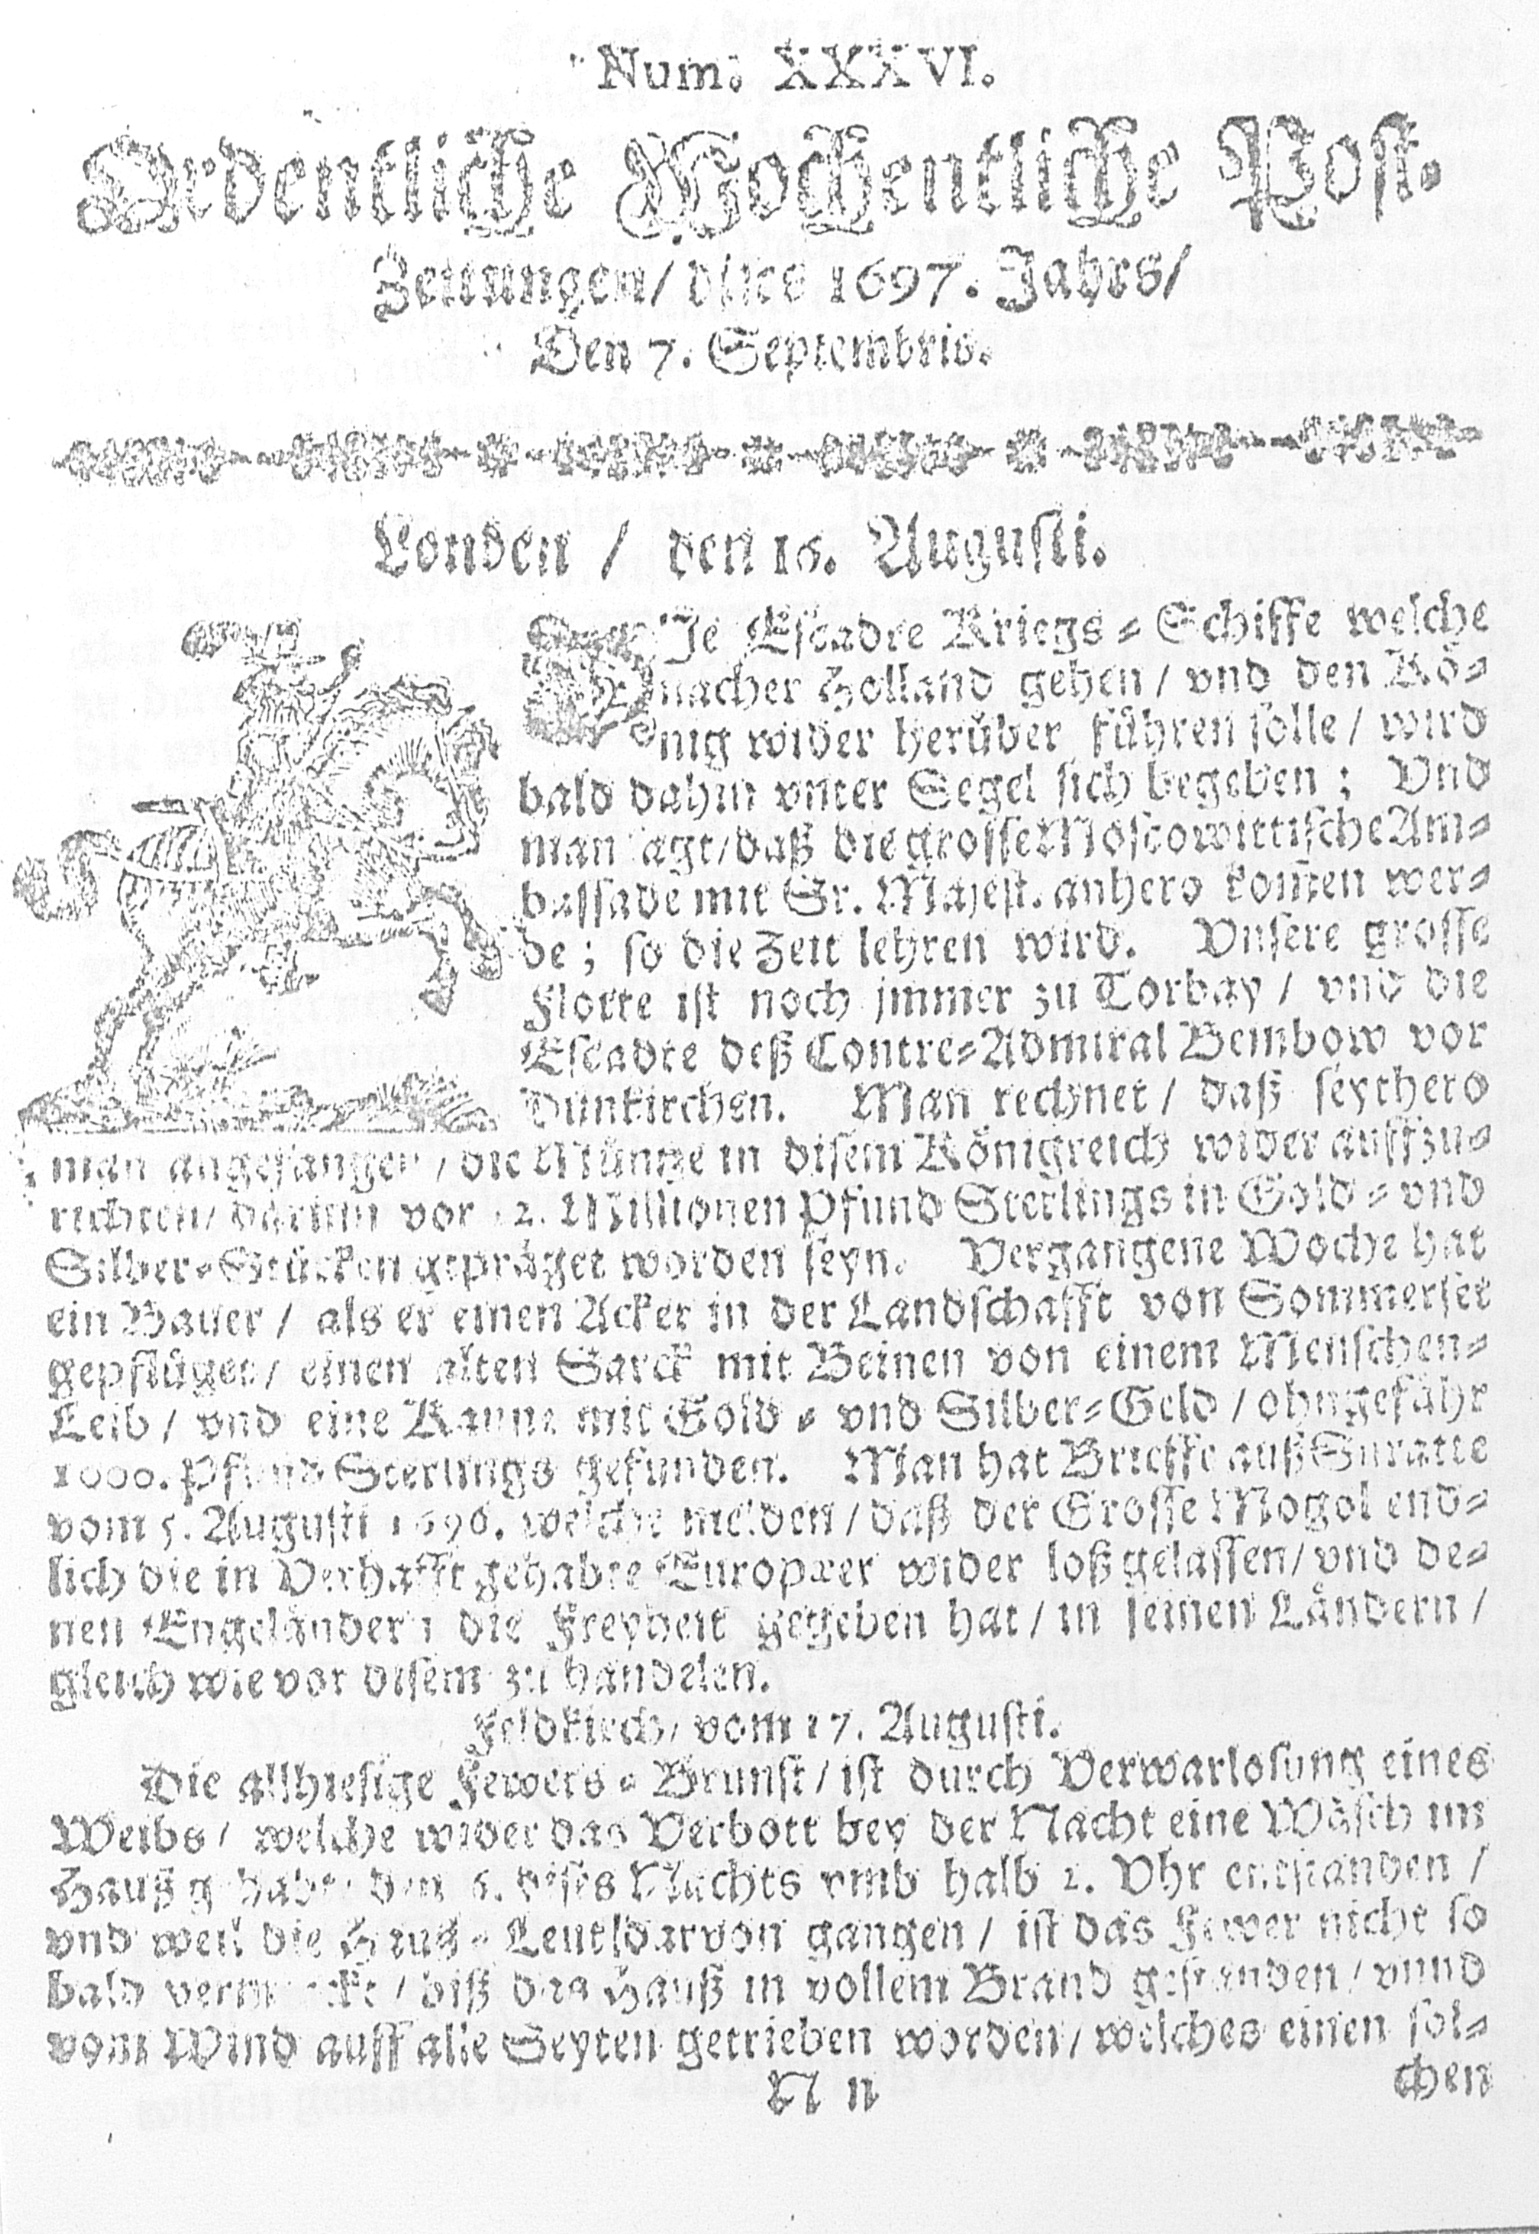 Num. XXXVI.
Ordentliche Wochentliche Post-
Zeitungen/ dises 1697. Jahrs/
Den 7. Septembris.
Londen / den 16. Augusti.
DIe Escadre Kriegs-Schiffe welche
nacher Holland gehen / vnd den Kö-
nig wider herüber führen solle / wird
bald dahin vnter Segel sich begeben ; Vnd
man sagt/daß die grosse Moscowittische Am-
bassade mit Sr. Majest. anhero kom̃en wer-
de ; so die Zeit lehren wird. Vnsere grosse
Flotte ist noch jmmer zu Torbay / vnd die
Escadre deß Contre-Admiral Bembow vor
Dünkirchen. Man rechnet / daß seythero
man angefangen / die Müntze in disem Königreich wider auffzu-
richten/ darinn vor 12. Millionen Pfund Sterlings in Gold- vnd
Silber-Stücken gepräget worden seyn. Vergangene Woche hat
ein Bauer / als er einen Acker in der Landschafft von Sommerset
gepflüget/ einen alten Sarck mit Beinen von einem Menschen-
Leib / vnd eine Kanne mit Gold- vnd Silber-Geld / ohngefähr
1000. Pfund Sterlings gefunden. Man hat Brieffe auß Suratte
vom 5. Augusti 1696. welche melden / daß der Grosse Mogol end-
lich die in Verhafft gehabte Europæer wider loß gelassen/ vnd de-
nen Engeländern die Freyheit gegeben hat / in seinen Ländern /
gleich wie vor disem zu handelen.
Feldkirch/ vom 17. Augusti.
Die allhiesige Fewers-Brunst / ist durch Verwarlosung eines
Weibs / welche wider das Verbott bey der Nacht eine Wäsch im
Hauß gehabt/ den 6. dises Nachts vmb halb 2. Vhr entstanden /
vnd weil die Haus-Leuth darvon gangen / ist das Fewer nicht so
bald vermerckt / biß das Hauß in vollem Brand gestanden / vnnd
vom Wind auff alle Seyten getrieben worden / welches einen sol-
N n
chen